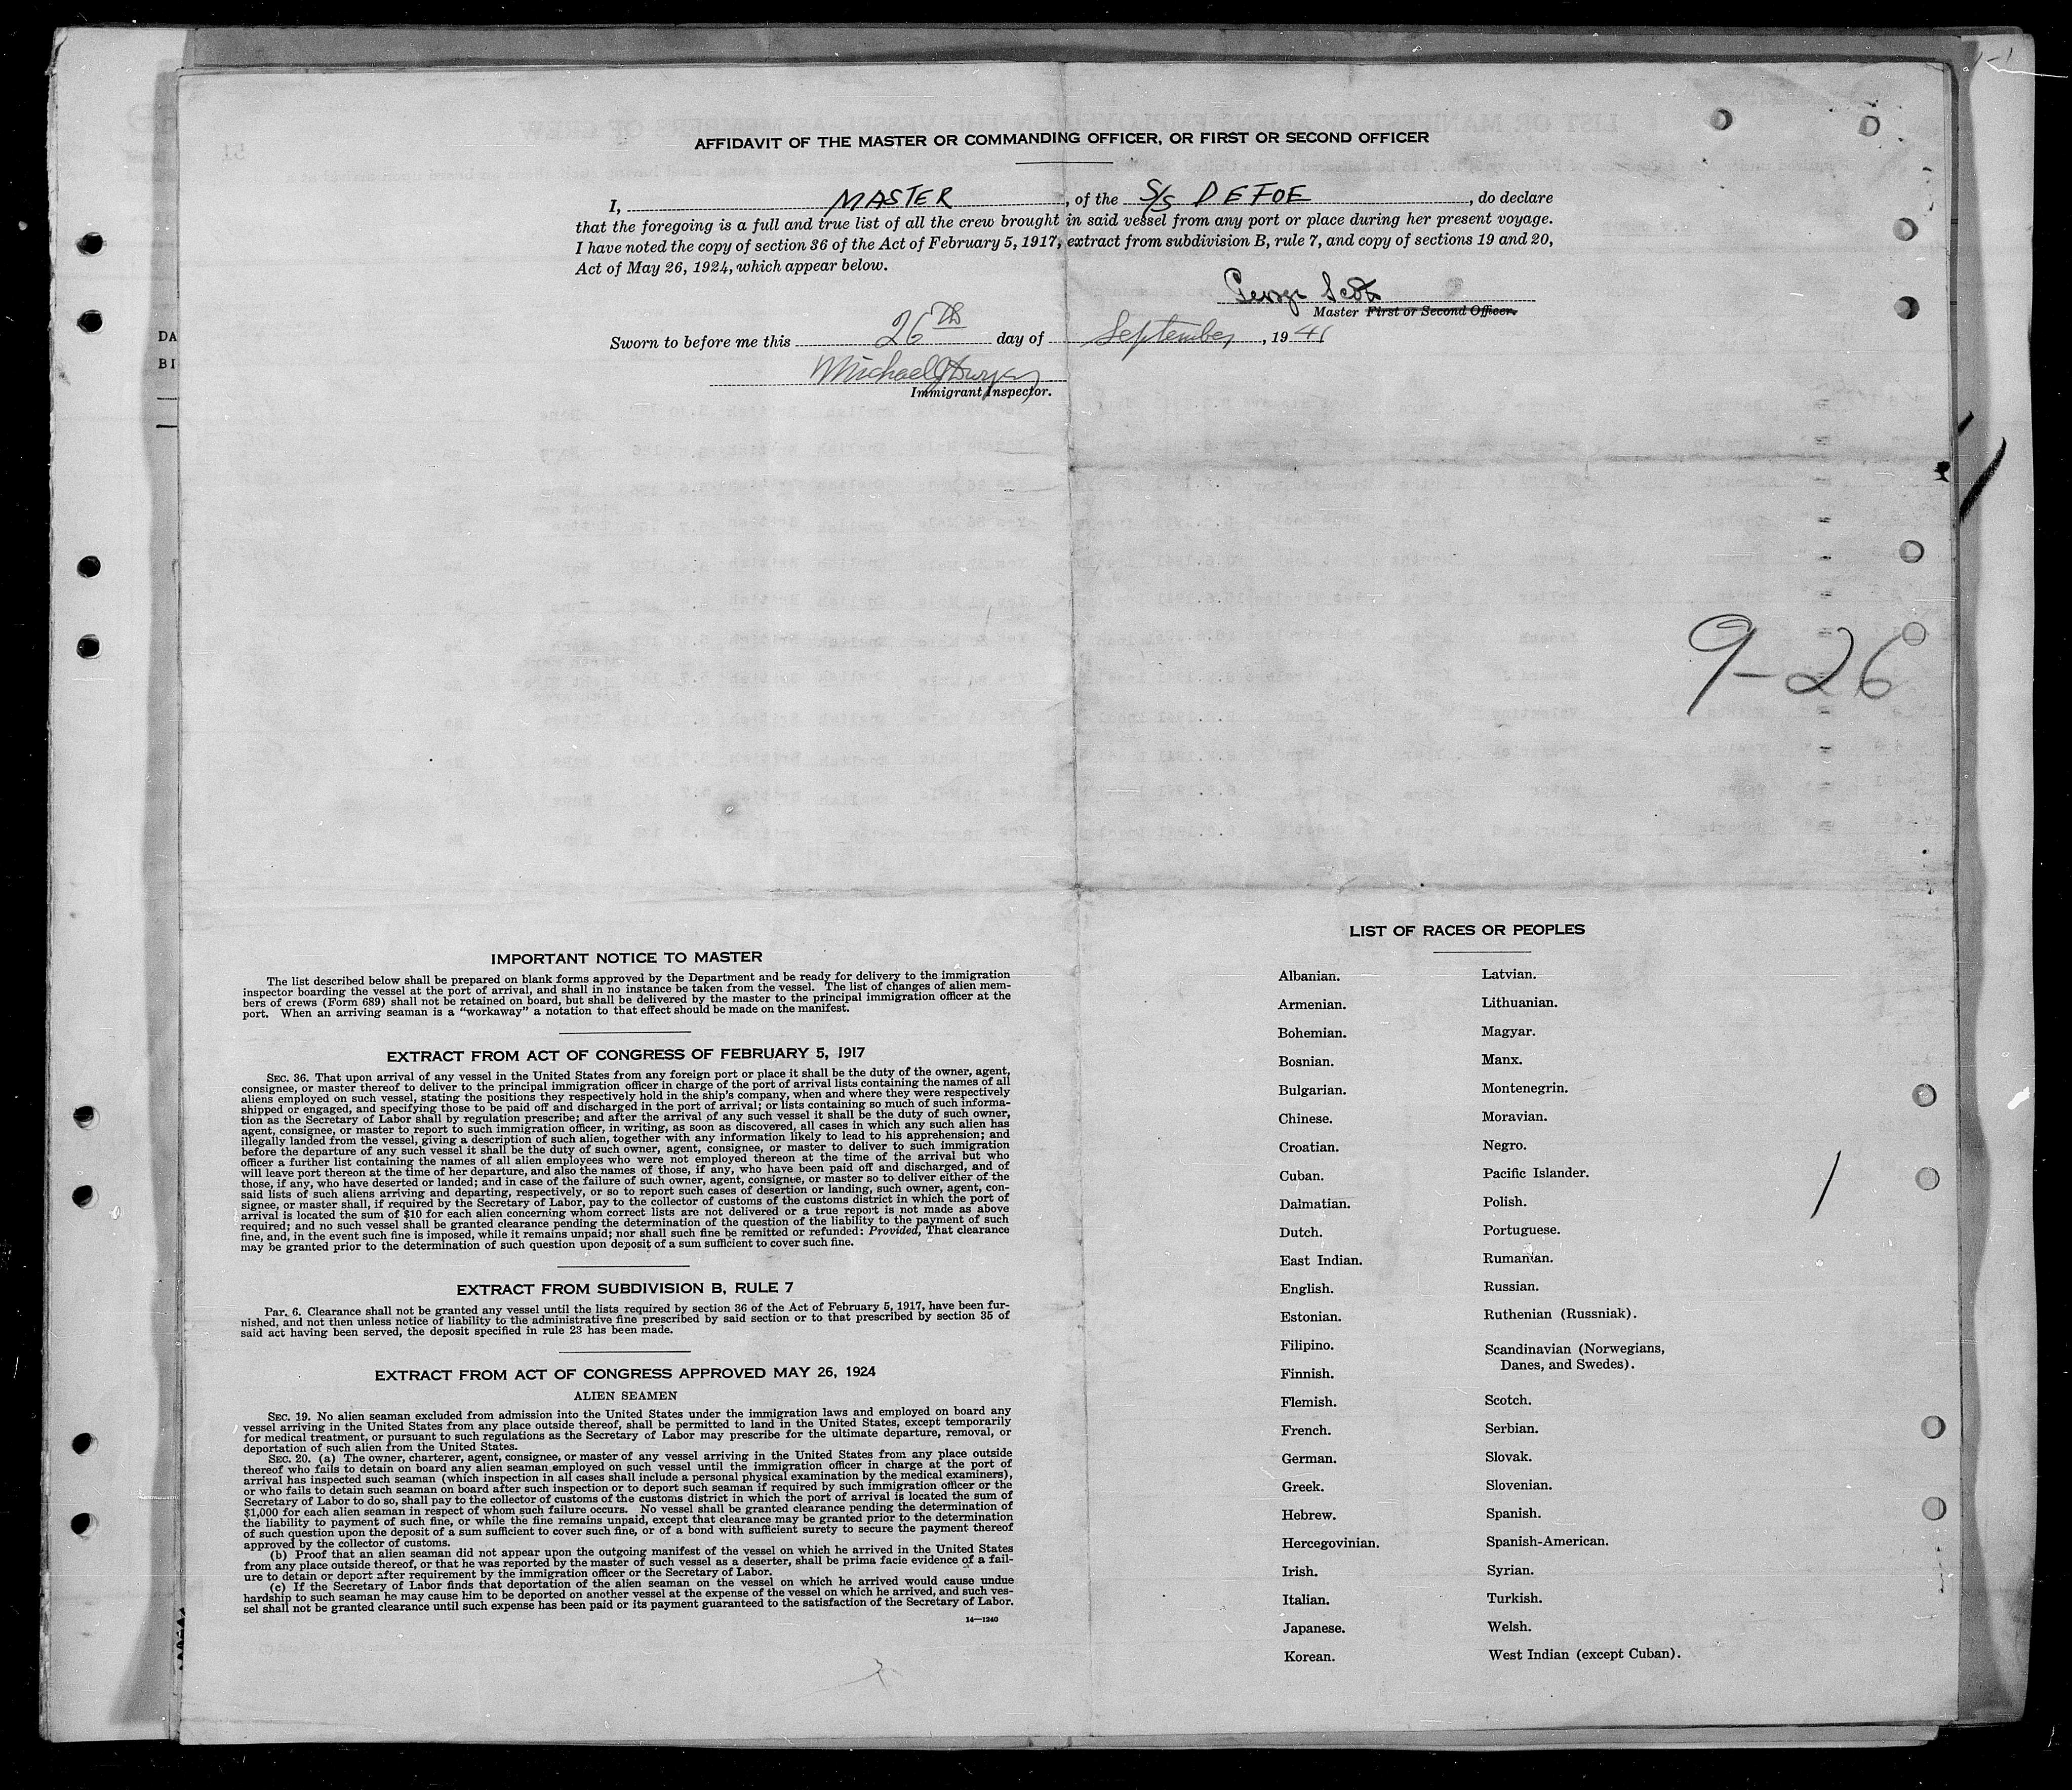 AFFIDAVIT OF THE MASTER OR COMMANDING OFFICER, OR FIRST OR SECOND OFFICER
I, MASTER, of the S/S DEFOE, do declare
that the foregoing is a full and true list of all the crew brought in said vessel from any port or place during her present voyage.
I have noted the copy of section 36 of the Act of February 5, 1917, extract from subdivision B, rule 7, and copy of sections 19 and 20,
Act of May 26, 1924, which appear below.
George Scott
Master First or Second Officer.
Sworn to before me this 26th day of September, 1941
Michael J Dwyer
Immigrant Inspector.
DA
BI
9-26
IMPORTANT NOTICE TO MASTER
The list described below shall be prepared on blank forms approved by the Department and be ready for delivery to the immigration
inspector boarding the vessel at the port of arrival, and shall in no instance be taken from the vessel. The list of changes of alien mem-
bers of crews (Form 689) shall not be retained on board, but shall be delivered by the master to the principal immigration officer at the
port. When an arriving seaman is a “workaway” a notation to that effect should be made on the manifest.
EXTRACT FROM ACT OF CONGRESS OF FEBRUARY 5, 1917
SEC. 36. That upon arrival of any vessel in the United States from any foreign port or place it shall be the duty of the owner, agent,
consignee, or master thereof to deliver to the principal immigration officer in charge of the port of arrival lists containing the names of all
aliens employed on such vessel, stating the positions they respectively hold in the ship's company, when and where they were respectively
shipped or engaged, and specifying those to be paid off and discharged in the port of arrival; or lists containing so much of such informa-
tion as the Secretary of Labor shall by regulation prescribe; and after the arrival of any such vessel it shall be the duty of such owner,
agent, consignee, or master to report to such immigration officer, in writing, as soon as discovered, all cases in which any such alien has
illegally landed from the vessel, giving a description of such alien, together with any information likely to lead to his apprehension; and
before the departure of any such vessel it shall be the duty of such owner, agent, consignee, or master to deliver to such immigration
officer a further list containing the names of all alien employees who were not employed thereon at the time of the arrival but who
will leave port thereon at the time of her departure, and also the names of those, if any, who have been paid off and discharged, and of
those, if any, who have deserted or landed; and in case of the failure of such owner, agent, consignee, or master so to deliver either of the
said lists of such aliens arriving and departing, respectively, or so to report such cases of desertion or landing, such owner, agent, con-
signee, or master shall, if required by the Secretary of Labor, pay to the collector of customs of the customs district in which the port of
arrival is located the sum of $10 for each alien concerning whom correct lists are not delivered or a true report is not made as above
required; and no such vessel shall be granted clearance pending the determination of the question of the liability to the payment of such
fine, and, in the event such fine is imposed, while it remains unpaid; nor shall such fine be remitted or refunded: Provided, That clearance
may be granted prior to the determination of such question upon deposit of a sum sufficient to cover such fine.
EXTRACT FROM SUBDIVISION B, RULE 7
Par. 6. Clearance shall not be granted any vessel until the lists required by section 36 of the Act of February 5, 1917, have been fur-
nished, and not then unless notice of liability to the administrative fine prescribed by said section or to that prescribed by section 35 of
said act having been served, the deposit specified in rule 23 has been made.
EXTRACT FROM ACT OF CONGRESS APPROVED MAY 26, 1924
ALIEN SEAMEN
SEC. 19. No alien seaman excluded from admission into the United States under the immigration laws and employed on board any
vessel arriving in the United States from any place outside thereof, shall be permitted to land in the United States, except temporarily
for medical treatment, or pursuant to such regulations as the Secretary of Labor may prescribe for the ultimate departure, removal, or
deportation of such alien from the United States.
SEC. 20. (a) The owner, charterer, agent, consignee, or master of any vessel arriving in the United States from any place outside
thereof who fails to detain on board any alien seaman employed on such vessel until the immigration officer in charge at the port of
arrival has inspected such seaman (which inspection in all cases shall include a personal physical examination by the medical examiners),
or who fails to detain such seaman on board after such inspection or to deport such seaman if required by such immigration officer or the
Secretary of Labor to do so, shall pay to the collector of customs of the customs district in which the port of arrival is located the sum of
$1,000 for each alien seaman in respect of whom such failure occurs. No vessel shall be granted clearance pending the determination of
the liability to payment of such fine, or while the fine remains unpaid, except that clearance may be granted prior to the determination
of such question upon the deposit of a sum sufficient to cover such fine, or of a bond with sufficient surety to secure the payment thereof
approved by the collector of customs.
(b) Proof that an alien seaman did not appear upon the outgoing manifest of the vessel on which he arrived in the United States
from any place outside thereof, or that he was reported by the master of such vessel as a deserter, shall be prima facie evidence of a fail-
ure to detain or deport after requirement by the immigration officer or the Secretary of Labor.
(c) If the Secretary of Labor finds that deportation of the alien seaman on the vessel on which he arrived would cause undue
hardship to such seaman he may cause him to be deported on another vessel at the expense of the vessel on which he arrived, and such ves-
sel shall not be granted clearance until such expense has been paid or its payment guaranteed to the satisfaction of the Secretary of Labor.
14—1240
LIST OF RACES OR PEOPLES
Albanian.
Armenian.
Bohemian.
Bosnian.
Bulgarian.
Chinese.
Croatian.
Cuban.
Dalmatian.
Dutch.
East Indian.
English.
Estonian.
Filipino.
Finnish.
Flemish.
French.
German.
Greek.
Hebrew.
Hercegovinian.
Irish.
Italian.
Japanese.
Korean.
Latvian.
Lithuanian.
Magyar.
Manx.
Montenegrin.
Moravian.
Negro.
Pacific Islander.
Polish.
Portuguese.
Rumanian.
Russian.
Ruthenian (Russniak).
Scandinavian (Norwegians,
Danes, and Swedes).
Scotch.
Serbian.
Slovak.
Slovenian.
Spanish.
Spanish-American.
Syrian.
Turkish.
Welsh.
West Indian (except Cuban).